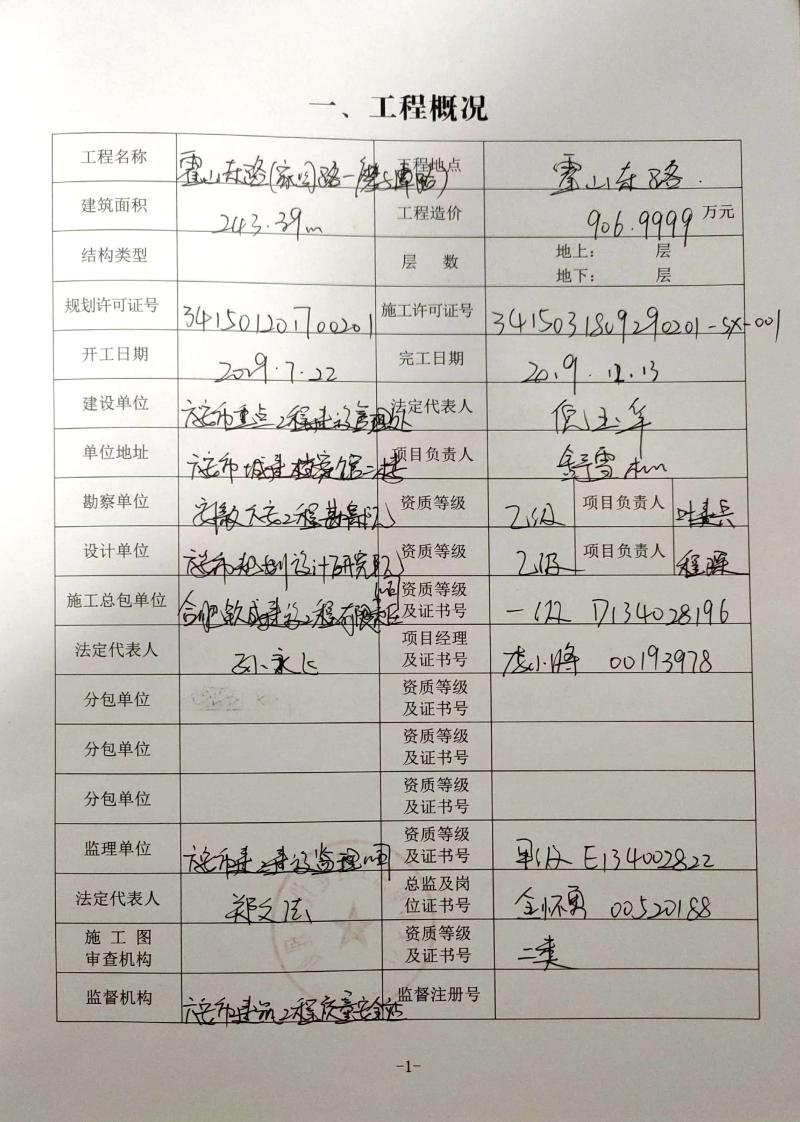 一、工程概况
工程名称 霍山东路( 路一 路) 工程地点 霍山东路.
建筑面积 243.39m 工程造价 906.9999 万元
结构类型 层 数 地上： 层
地下： 层
规划许可证号 341501201700201 施工许可证号 3415031809290201-SX-001
开工日期 2019.7.22 完工日期 2019.12.13
建设单位 六安市重点工程建设管理处 法定代表人 倪玉华
单位地址 六安市城建档案馆二楼 项目负责人
勘察单位 安徽 工程勘察院 资质等级 乙级 项目负责人 叶 兵
设计单位 六安市规划设计研究院 资质等级 乙级 项目负责人 程
施工总包单位 合肥 建设工程有限责任公司 资质等级
及证书号 一级 D134028196
法定代表人 孙永飞 项目经理
及证书号 小将 00193978
分包单位 资质等级
及证书号
分包单位 资质等级
及证书号
分包单位 资质等级
及证书号
监理单位 六安市建工建设监理 资质等级
及证书号 甲级 E134002822
法定代表人 郑文法 总监及岗
位证书号 金怀勇 00520188
施 工 图
审查机构 资质等级
及证书号 二类
监督机构 六安市建筑工程质量安全站 监督注册号
-1-